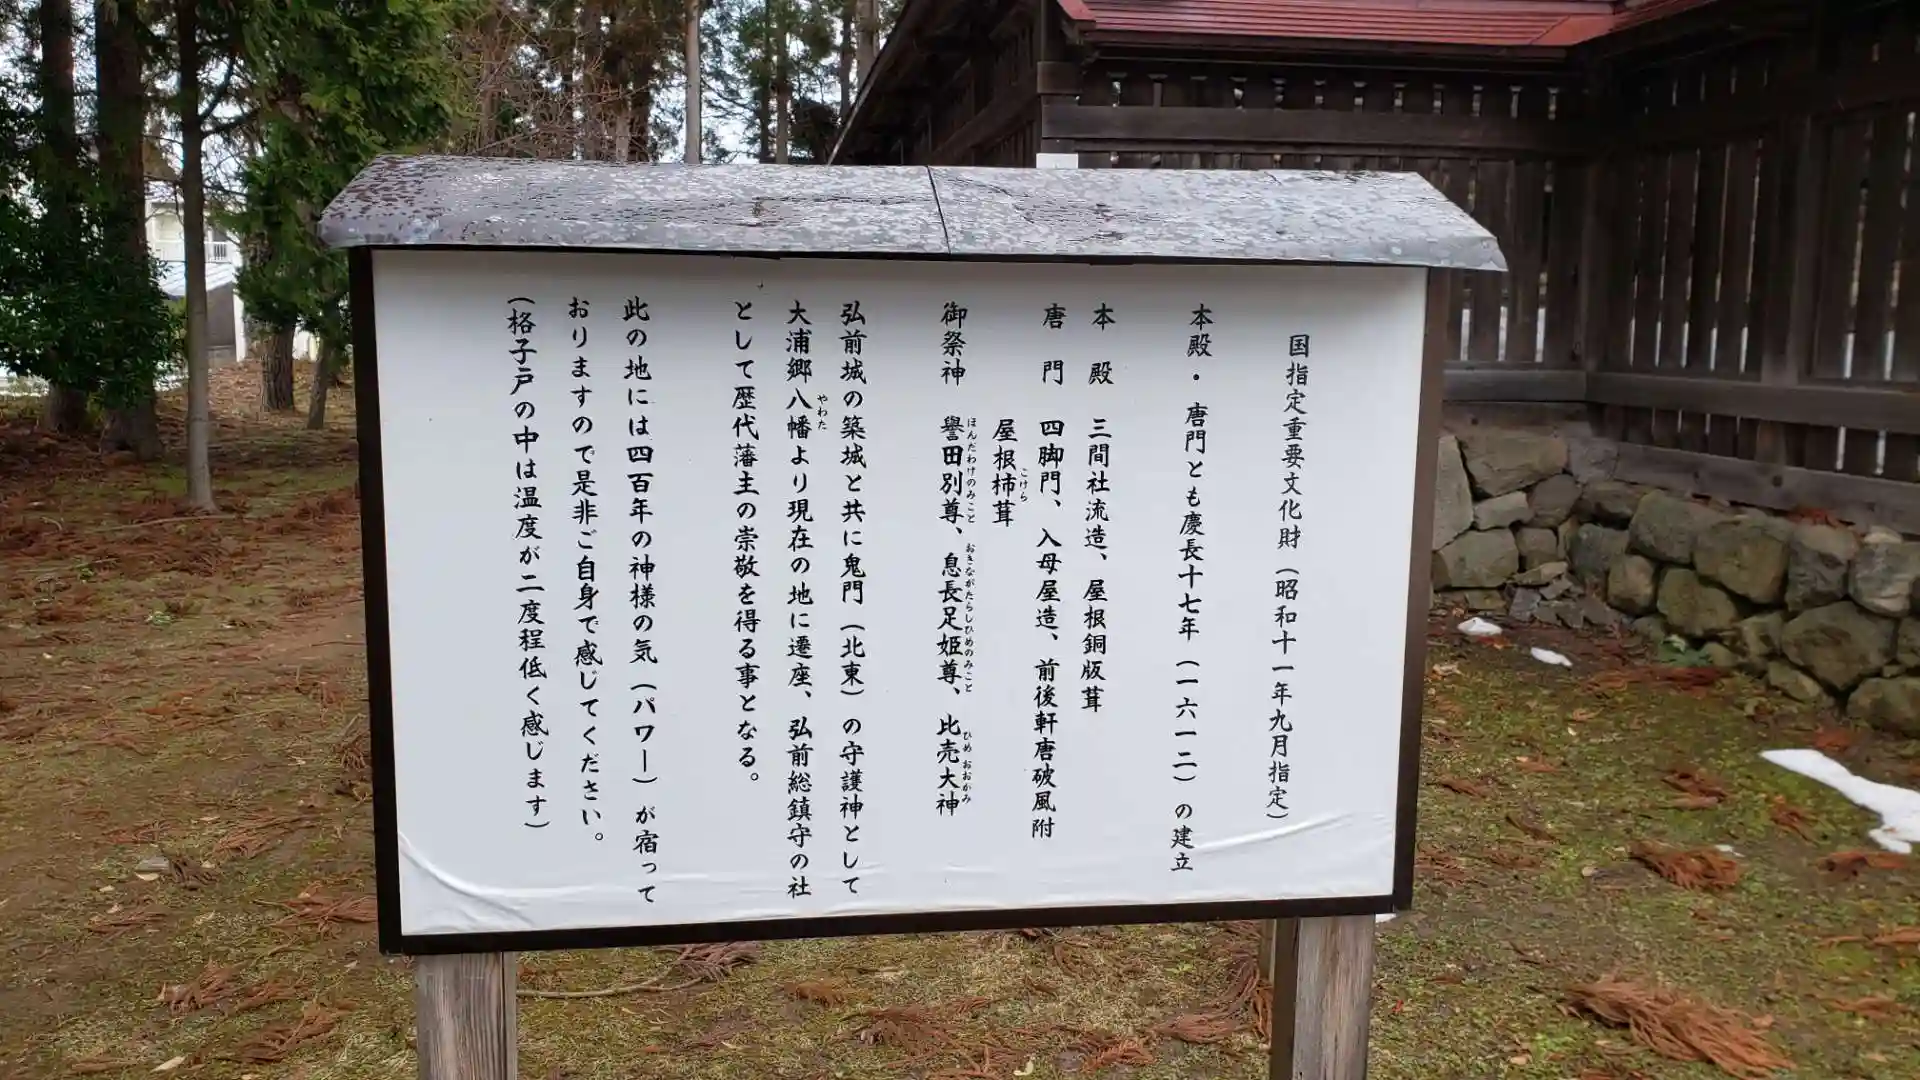 国指定重要文化財（昭和十一年九月指定）
本殿・唐門とも慶長十七年（一六一二）の建立
本殿　三間社流造、屋根銅版葺
唐門　四脚門、入母屋造、前後軒唐破風附
屋根柿葺
こけら
御祭神　譽田別尊、息長足姫尊、比売大神
ほんだわけのみこと　おきながたらしひめのみこと　ひめ おおかみ
弘前城の築城と共に鬼門（北東）の守護神として
大浦郷八幡より現在の地に遷座、弘前総鎮守の社
やわた
として歴代藩主の崇敬を得る事となる。
此の地には四百年の神様の気（パワー）が宿って
おりますので是非ご自身で感じてください。
（格子戸の中は温度が二度程低く感じます）